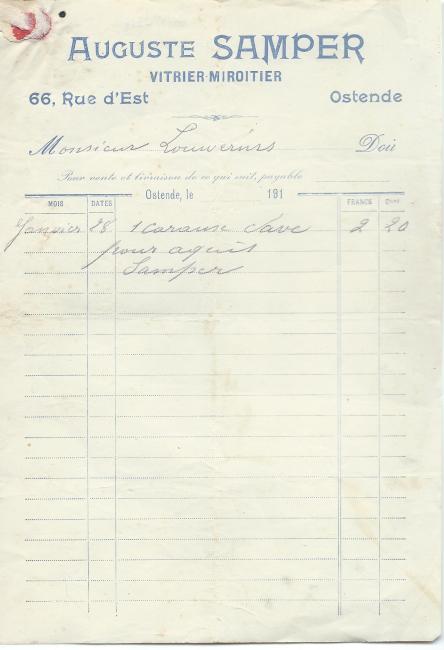 AUGUSTE SAMPER
VITRIER-MIROITIER
66, Rue d'Est Ostende
Monsieur Louwerurs Doit
Pour vente et livraison de ce qui suit, payable
Ostende, le 191
MOIS DATES FRANCS CENT
Janvier 28 1 carause cave 2 20
pour aquit
Samper